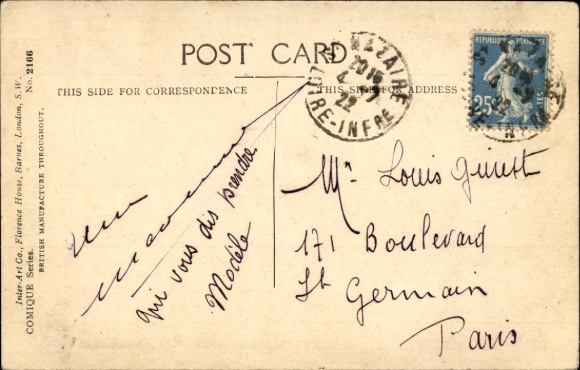 POST CARD
THIS SIDE FOR CORRESPONDENCE
THIS SIDE FOR ADDRESS
Inter-Art Co., Florence House, Barnes, London, S.W.
COMIQUE Series. No. 2166
BRITISH MANUFACTURE THROUGHOUT.
ST NAZAIRE
22
RE-INFRE
25
qui vous dis prendre
Modèle
Mr Louis
171 Boulevard
St Germain
Paris